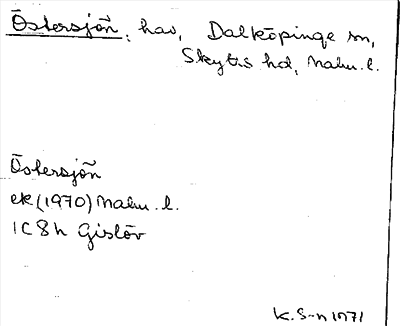 Östersjön, hav, Dalköpinge sn,
Skytts hd, Malm. l.
Östersjön
ek (1970) Malm. l.
1C 8h Gislöv
K. S-n 1971